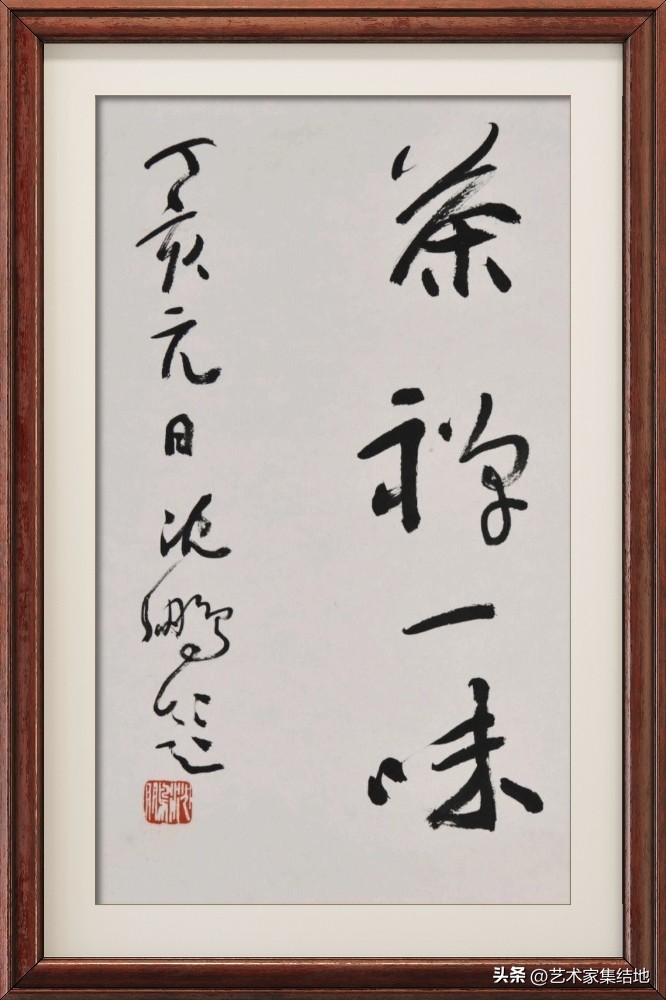 茶禅一味
丁亥元日沈鹏题
沈鹏
头条 @艺术家集结地